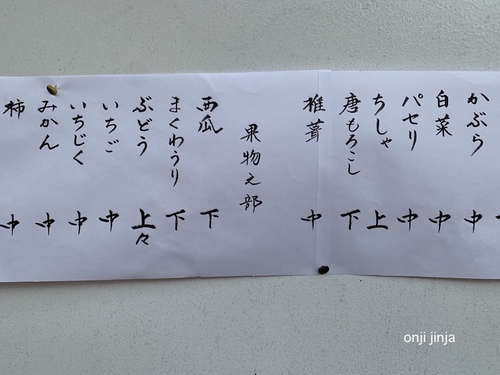 かぶら 中
白菜 中
パセリ 中
ちしゃ 上
唐もろこし 下
椎茸 中
果物之部
西瓜 下
まくわうり 下
ぶどう 上々
いちご 中
いちじく 中
みかん 中
柿 中
onji jinja